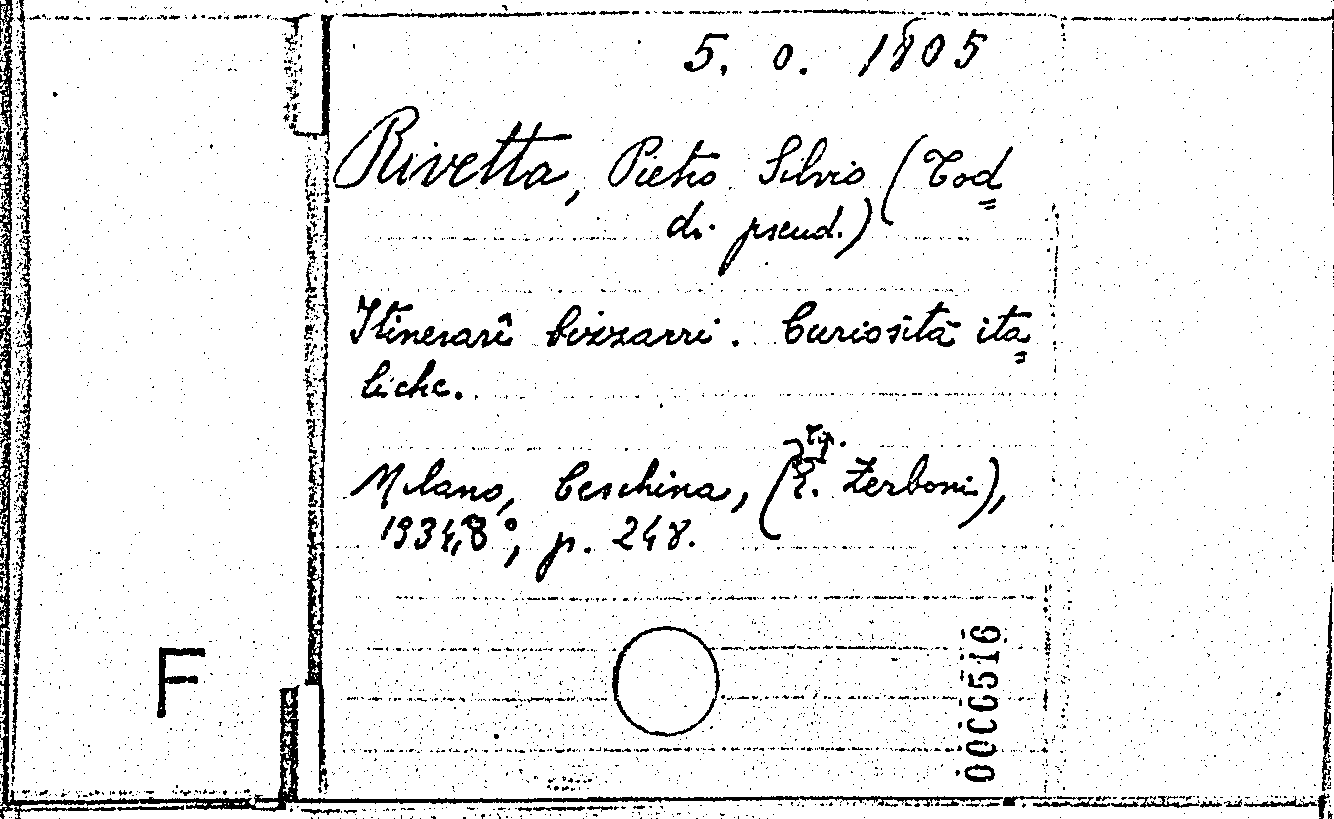 5. o. 1805
Rivetta, Pietro Silvio (Tod=
di. pseud.)
Itinerarî bizzarri. Curiosità ita=
liche.
Milano, Ceschina, (Tip. E. Zerboni),
1934, 8°, p. 248.
F
0006516